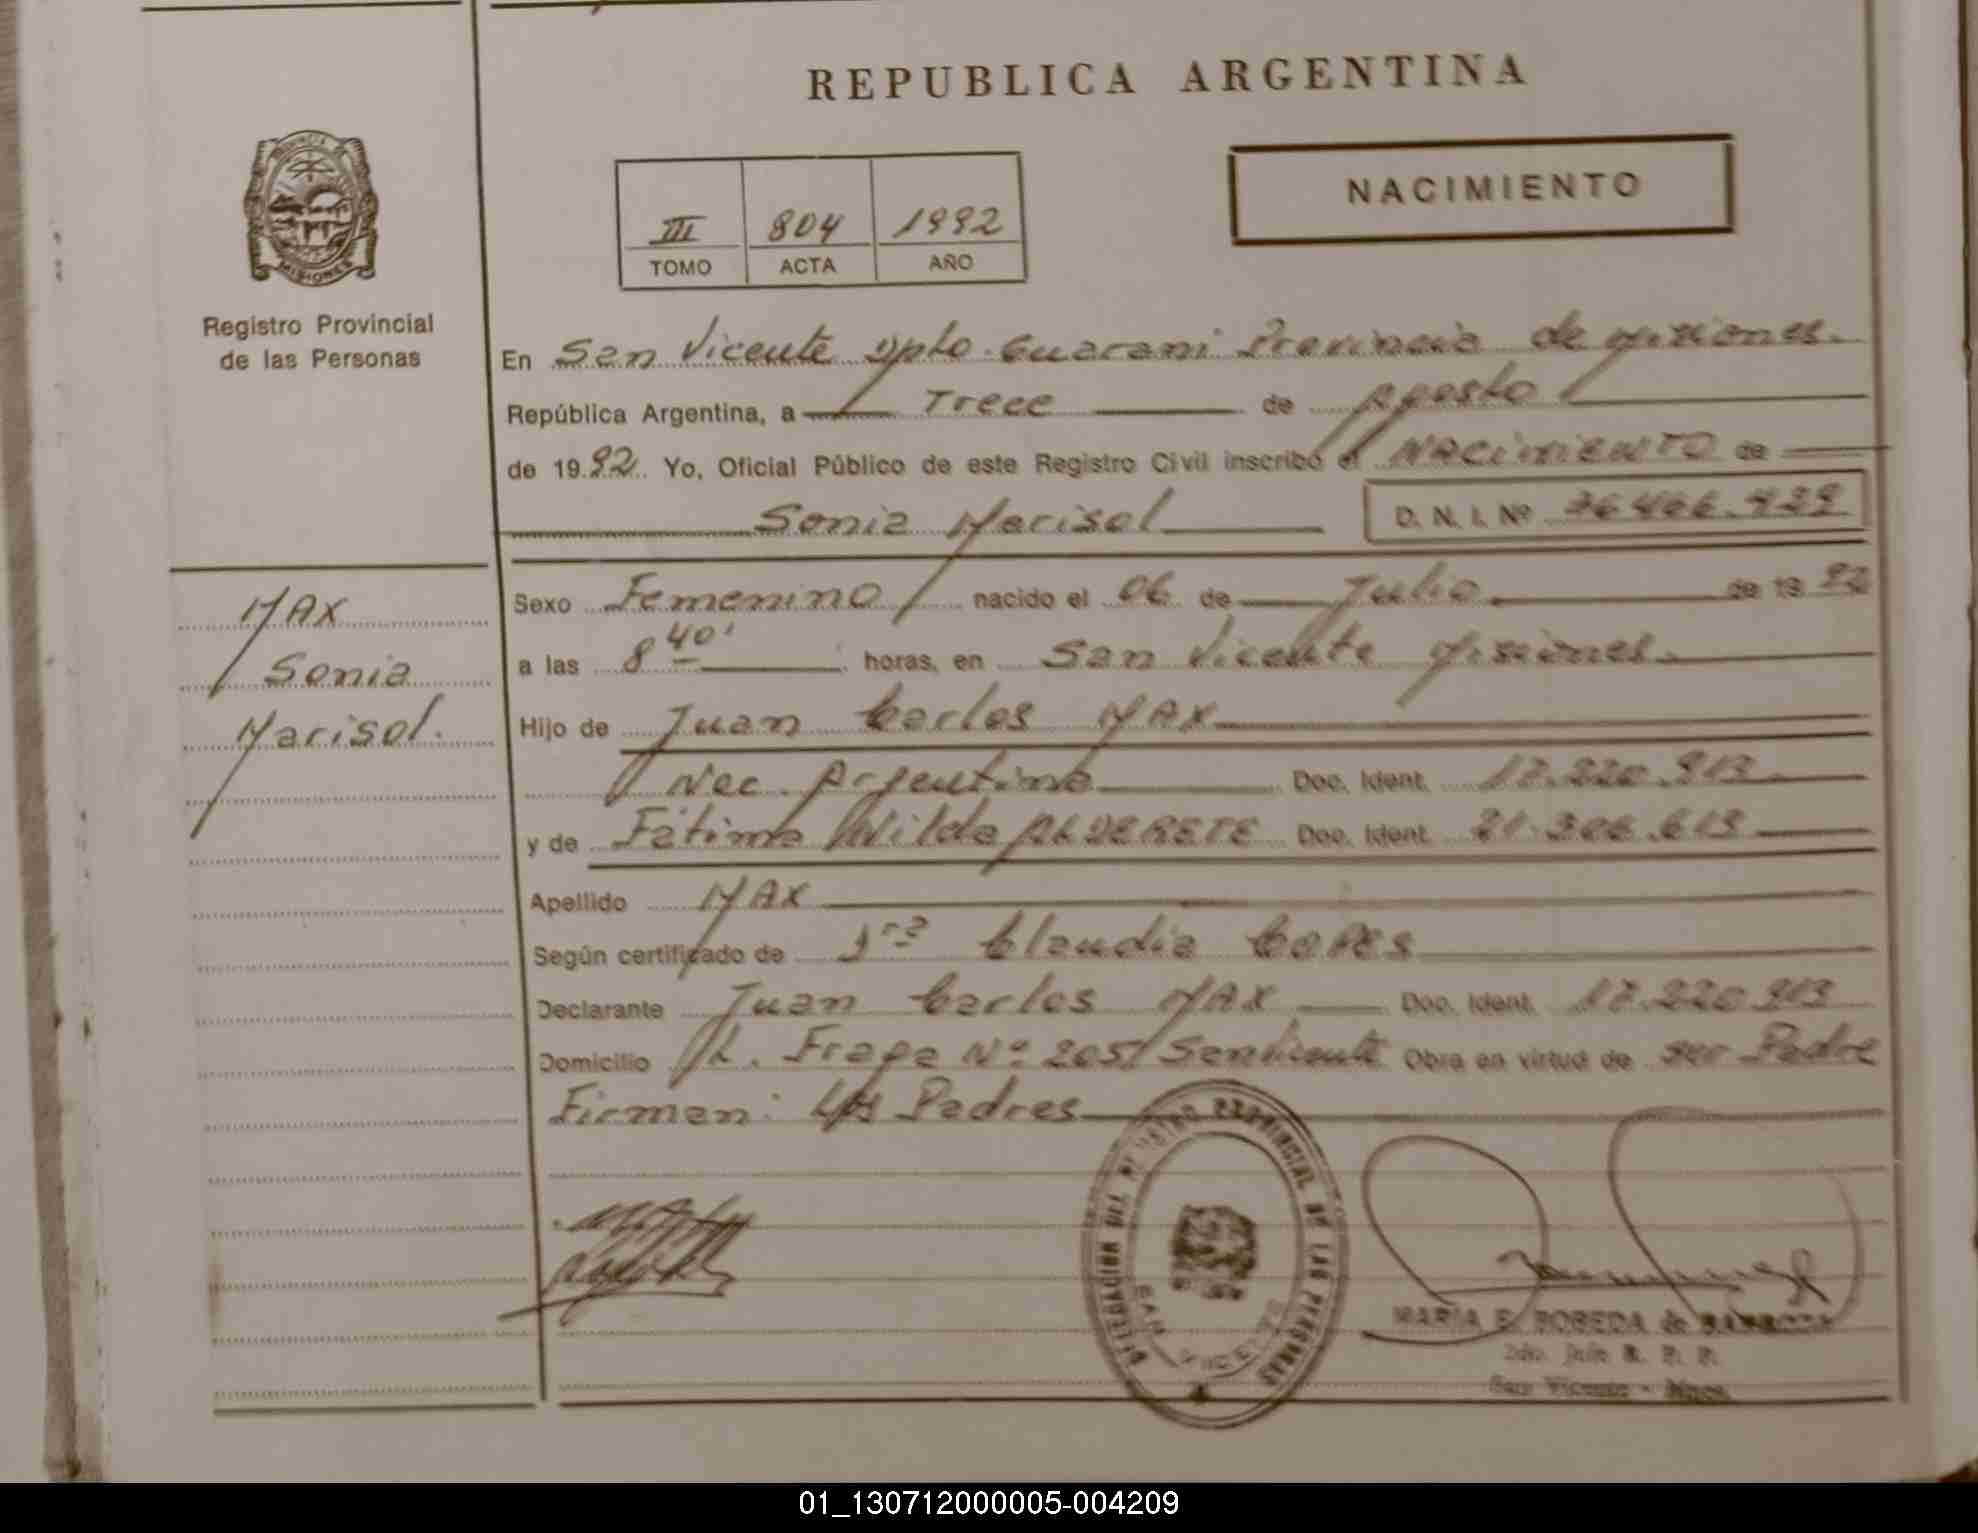 REPUBLICA ARGENTINA
NACIMIENTO
III 804 1992
TOMO ACTA AÑO
MISIONES
Registro Provincial
de las Personas
En San Vicente Dpto. Guarani Provincia de Misiones.
República Argentina, a Trece de Agosto
de 1992. Yo, Oficial Público de este Registro Civil inscribo el NACIMIENTO de
Sonia Marisol D. N. I. Nº
MAX
Sonia
Marisol.
Sexo Femenino nacido el 06 de Julio de 1992
a las 8 40' horas, en San Vicente Misiones.
Hijo de Juan Carlos MAX
Nac. Argentina Doc. Ident. 17.220.913
y de Fátima Nilda ALDERETE Doc. Ident. 21.306.613
Apellido MAX
Según certificado de Dra Claudia
Declarante Juan Carlos MAX Doc. Ident. 17.220.913
Domicilio Nº 205 Obra en virtud de ser Padre
Firman: Los Padres
DELEGACION DEL REGISTRO PROVINCIAL DE LAS PERSONAS
SAN VICENTE
MARIA E. BOBEDA de
2do. Jefe R. P. P.
San Vicente - Mnes.
01_130712000005-004209